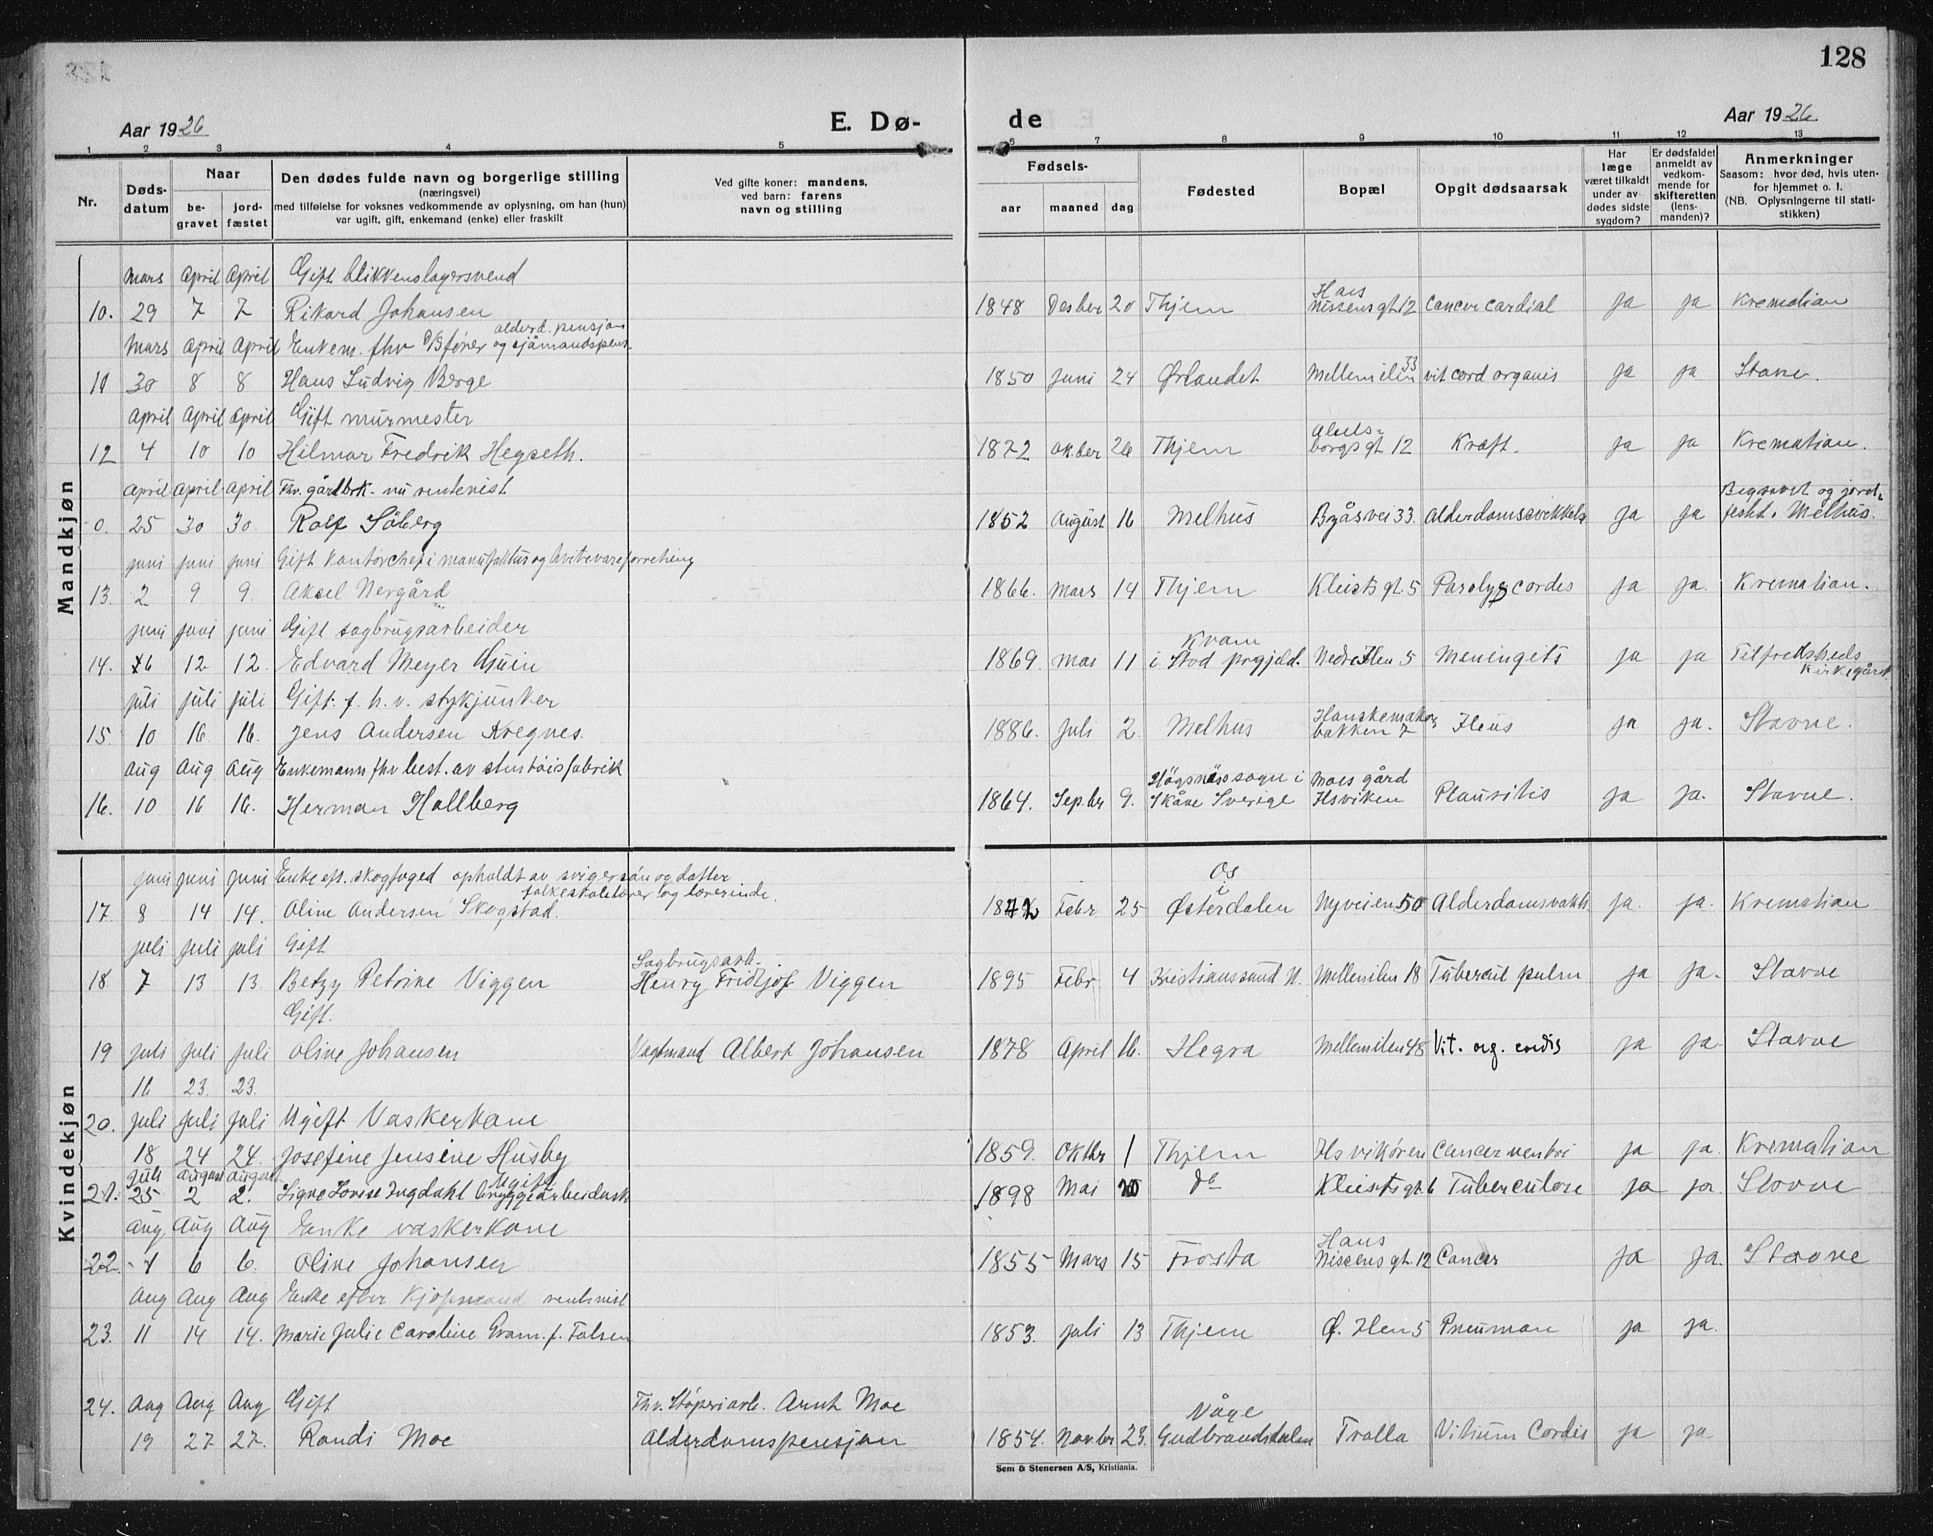 128
Aar 1926
E. Dø-
de
Aar 1926
1 2 3 4 5 6 7 8 9 10 11 12 13
Nr.
Døds-
datum
Naar
be-
gravet
jord-
fæstet
Den dødes fulde navn og borgerlige stilling
(næringsvei)
med tilføielse for voksnes vedkommende av oplysning, om han (hun)
var ugift, gift, enkemand (enke) eller fraskilt
Ved gifte koner: mandens,
ved barn: farens
navn og stilling
Fødsels-
aar
maaned
dag
Fødested
Bopæl
Opgit dødsaarsak
Har
læge
været tilkaldt
under av-
dødes sidste
sygdom?
Er dødsfaldet
anmeldt av
vedkom-
mende for
skifteretten
(lens-
manden)?
Anmerkninger
Seasom: hvor død, hvis uten-
for hjemmet o. l.
(NB. Oplysningerne til stati-
stikken)
Mandkjøn
Mars April April Gift blikkenslagersvend
10. 29 7 7 Rikard Johansen 1848 Desber 20 Thjem Hans Nissensgt 12 Cancer cardial Ja Ja Kremation
Mars April April Enkem. fhv D/S fører og sjömandspens. alderd. pensjon
11 30 8 8 Hans Ludvig Berge 1850 Juni 24 Ørlandet Mellemilen 33 vit cord organis Ja Ja Stavne.
April April April Gift murmester
12 4 10 10 Hilmar Fredrik Hegseth. 1872 Okber 26 Thjem borgsgt 12 Kræft. Ja Ja Kremation.
April April April Fhv. gårdbrk. nu rentenist
0. 25 30 30. Rolf Söberg 1852 August 16 Melhus Byåsvei 33. Alderdomssvekkels Ja Ja Begravet og jord-
festet i Melhus.
Juni Juni Juni Gift kontorchef i manufaktur og hvitevareforretning
13. 2 9 9. Aksel Nergård 1866. Mars 14 Thjem Kleistsgt. 5 Paralys cordis Ja Ja. Kremation.
Juni Juni Juni Gift sagbrugsarbeider
14. 6 12 12. Edvard Meyer Guin 1869. Mai 11 Kvam i Stod prgjeld. Nedre Ilen 5 Meningets Ja Ja Tilfredsheds
Kirkegård
Juli Juli Juli Gift. f. h. v. stykjunker
15. 10 16 16. Jens Andersen Kregnes. 1886. Juli 2. Melhus Hanskemaker bakken 7 Ileus Ja Ja. Stavne.
Aug Aug Aug Enkemann fhv best. av fabrik
16. 10 16 16. Herman Hallberg 1864. Sepbr 9. sogn i Skåne Sverige Moes gård Ilsviken Pleuritis Ja Ja. Stavne.
Kvindekjøn
Juni Juni Juni Enke eft. skogfoged opholdt av svigersön og datter
folkeskolelærer og lærerinde.
17. 8 14 14. Oline Andersen Skogstad. 1842 Febr 25 Os i Østerdalen Nyveien 50 Alderdomsvakh Ja. Ja. Kremation
Juli Juli Juli Gift
18 7 13 13 Betzy Petrine Viggen Sagbrugsarb. Henry Fridtjof Viggen 1895 Febr 4 Kristianssund N. Mellemilen 18 Tubercul pulm Ja Ja. Stavne
Gift.
19 Juli Juli Juli Oline Johansen Vagtmand Albert Johansen 1878 April 16. Hegra Mellemilen 48 Vit. org. cordis Ja Ja. Stavne
16 23. 23.
20. Juli Juli Juli Ugift Vaskerkone
18 24 24. Josefine Jensine Husby 1859. Oktbr 1 Thjem Ilsvikören Cancer ventri Ja Ja. Kremation
Juli August August Ugift
21. 25 2 2. Signe Lovise Ingdahl bryggearbeidersk 1898 Mai 20 do Kleistsgt 6 Tuberculose Ja Ja. Stavne
Aug Aug Aug Enke vaskerkone
22. 1 6 6. Oline Johansen 1855 Mars 15 Frosta Hans Nissensgt. 12 Cancer Ja Ja. Stavne
Aug Aug Aug Enke efter Kjöpmand rentenist
23. 11 14 14. Marie Julie Caroline Gram. f. Falsen 1853. Juli 13 Thjem Ø. Ilen 5 Pneumon Ja Ja.
24. Aug Aug Aug Gift Fhv. Støperiarb. Arnt Moe
19 27 27. Randi Moe Alderdomspensjon 1854. Novbr 23. Våge Gudbrandsdalen Trolla Vitium Cordis Ja Ja
Sem & Stenersen A/S, Kristiania.